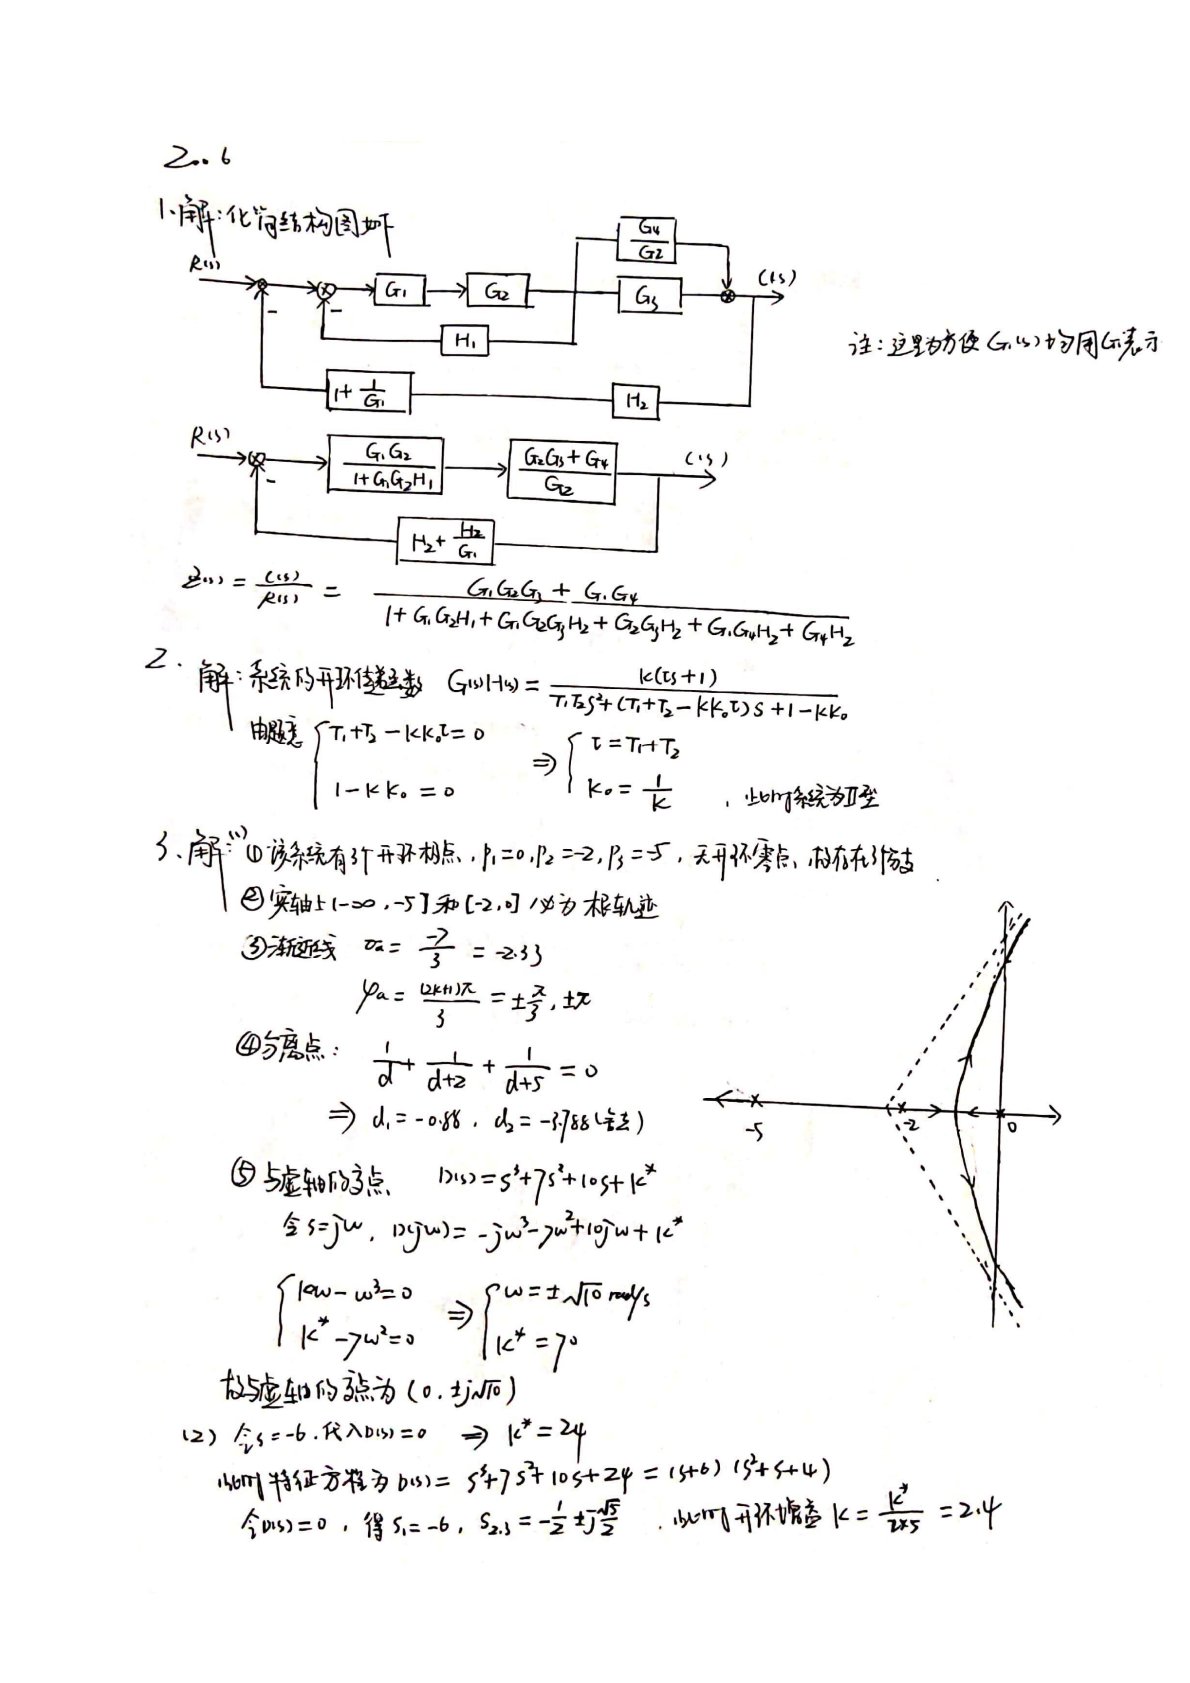 2006
1、解:化简结构图如下
R(s) G₁ G₂ G₄/G₂ G₃ C(s)
- - H₁
1+1/G₁ H₂
注:这里为方便 G₁(s)均用G₁表示
R(s) G₁G₂/(1+G₁G₂H₁) (G₂G₃+G₄)/G₂ C(s)
- H₂+H₂/G₁
Φ(s) = C(s)/R(s) = (G₁G₂G₃+G₁G₄)/(1+G₁G₂H₁+G₁G₂G₃H₂+G₂G₃H₂+G₁G₄H₂+G₄H₂)
2. 解:系统的开环传递函数 G(s)H(s) = k(τs+1)/(T₁T₂s²+(T₁+T₂-kk₀τ)s+1-kk₀)
由题意 { T₁+T₂-kk₀τ=0 ⇒ { τ=T₁+T₂
1-kk₀=0 k₀=1/k ,此时系统为Ⅱ型
3、解:(1) ①该系统有3个开环极点,p₁=0,p₂=-2,p₃=-5,无开环零点,故存在3个分支
②实轴上(-∞,-5]和[-2,0]必为根轨迹
③渐近线 σa = -7/3 = -2.33
φa = (2k+1)π/3 = ±π/3, ±π
④分离点: 1/d + 1/(d+2) + 1/(d+5) = 0
⇒ d₁=-0.88, d₂=-3.788(舍去)
-5 -2 0
⑤与虚轴的交点 D(s)=s³+7s²+10s+k*
令s=jw, D(jw)=-jw³-7w²+10jw+k*
{ 10w-w³=0 ⇒ { w=±√10 rad/s
k*-7w²=0 k*=70
故与虚轴的交点为(0,±j√10)
(2) 令s=-6,代入D(s)=0 ⇒ k*=24
此时特征方程为D(s)=s³+7s²+10s+24=(s+6)(s²+s+4)
令D(s)=0,得s₁=-6, s₂,₃=-1/2±j√5/2 ,此时开环增益k=k*/(2×5)=2.4